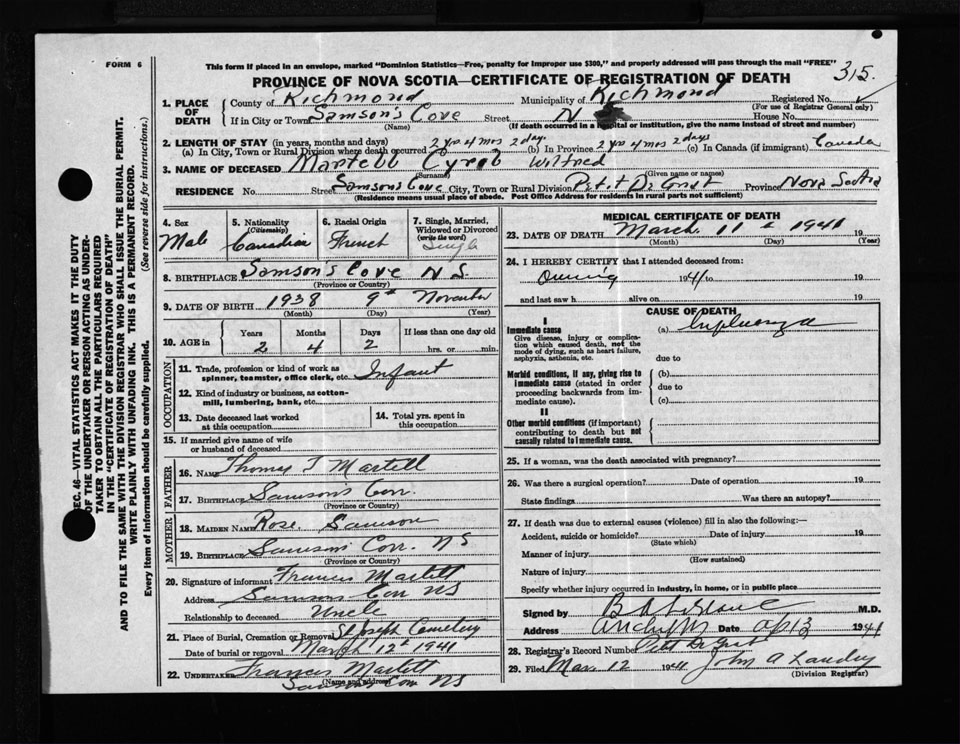 FORM 6
This form if placed in an envelope, marked "Dominion Statistics—Free, penalty for improper use $300," and properly addressed will pass through the mail "FREE"
315.
PROVINCE OF NOVA SCOTIA—CERTIFICATE OF REGISTRATION OF DEATH
1. PLACE OF DEATH County of Richmond Municipality of Richmond Registered No.
(For use of Registrar General only)
If in City or Town Samson's Cove Street N House No.
(Name) (If death occurred in a hospital or institution, give the name instead of street and number)
2. LENGTH OF STAY (in years, months and days)
(a) In City, Town or Rural Division where death occurred 2 yrs 4 mos 2 days (b) In Province 2 yrs 4 mos 2 days (c) In Canada (if immigrant) Canada
3. NAME OF DECEASED Martell Cyral Wilfred
(Surname) (Given name or names)
RESIDENCE No. Street Samson's Cove City, Town or Rural Division Petit De Grat Province Nova Scotia
(Residence means usual place of abode. Post Office Address for residents in rural parts not sufficient)
4. Sex
Male
5. Nationality
(Citizenship)
Canadian
6. Racial Origin
French
7. Single, Married, Widowed or Divorced
(write the word)
Single
8. BIRTHPLACE Samson's Cove N S.
(Province or Country)
9. DATE OF BIRTH 1938 9th November
(Month) (Day) (Year)
10. AGE in
Years Months Days If less than one day old
2 4 2 hrs. or min.
OCCUPATION
11. Trade, profession or kind of work as spinner, teamster, office clerk, etc. Infant
12. Kind of industry or business, as cotton-mill, lumbering, bank, etc.
13. Date deceased last worked at this occupation
14. Total yrs. spent in this occupation
15. If married give name of wife or husband of deceased
FATHER
16. NAME Thomas T Martell
17. BIRTHPLACE Samson's Cov.
(Province or Country)
MOTHER
18. MAIDEN NAME Rose Samson
19. BIRTHPLACE Samson's Cov. NS
(Province or Country)
20. Signature of informant Francis Martell
Address Samsons Cov NS
Relationship to deceased Uncle
21. Place of Burial, Cremation or Removal St Joseph Cemetery
Date of burial or removal March 12th 1941
22. UNDERTAKER Francis Martell
(Name and address)
Samsons Cov NS
MEDICAL CERTIFICATE OF DEATH
23. DATE OF DEATH March 11th 1941 19
(Month) (Day) (Year)
24. I HEREBY CERTIFY that I attended deceased from:
1941 to 19
and last saw h alive on 19
CAUSE OF DEATH
I
Immediate cause
Give disease, injury or complication which caused death, not the mode of dying, such as heart failure, asphyxia, asthenia, etc.
(a) Influenza
due to
Morbid conditions, if any, giving rise to immediate cause (stated in order proceeding backwards from immediate cause).
(b)
due to
(c)
II
Other morbid conditions (if important) contributing to death but not causally related to immediate cause.
25. If a woman, was the death associated with pregnancy?
26. Was there a surgical operation? Date of operation 19
State findings Was there an autopsy?
27. If death was due to external causes (violence) fill in also the following:—
Accident, suicide or homicide? Date of injury 19
(State which)
Manner of injury
(How sustained)
Nature of injury
Specify whether injury occurred in industry, in home, or in public place
Signed by B A LeBlanc M.D.
Address Date Ap 13 1941
28. Registrar's Record Number Petit De Grat
29. Filed Mar. 12 1941 John A Landry
(Division Registrar)
SEC. 46—VITAL STATISTICS ACT MAKES IT THE DUTY
OF THE UNDERTAKER OR PERSON ACTING AS UNDERTAKER TO OBTAIN ALL THE PARTICULARS REQUIRED
IN THE "CERTIFICATE OF REGISTRATION OF DEATH"
AND TO FILE THE SAME WITH THE DIVISION REGISTRAR WHO SHALL ISSUE THE BURIAL PERMIT.
WRITE PLAINLY WITH UNFADING INK. THIS IS A PERMANENT RECORD.
Every item of information should be carefully supplied. (See reverse side for instructions.)